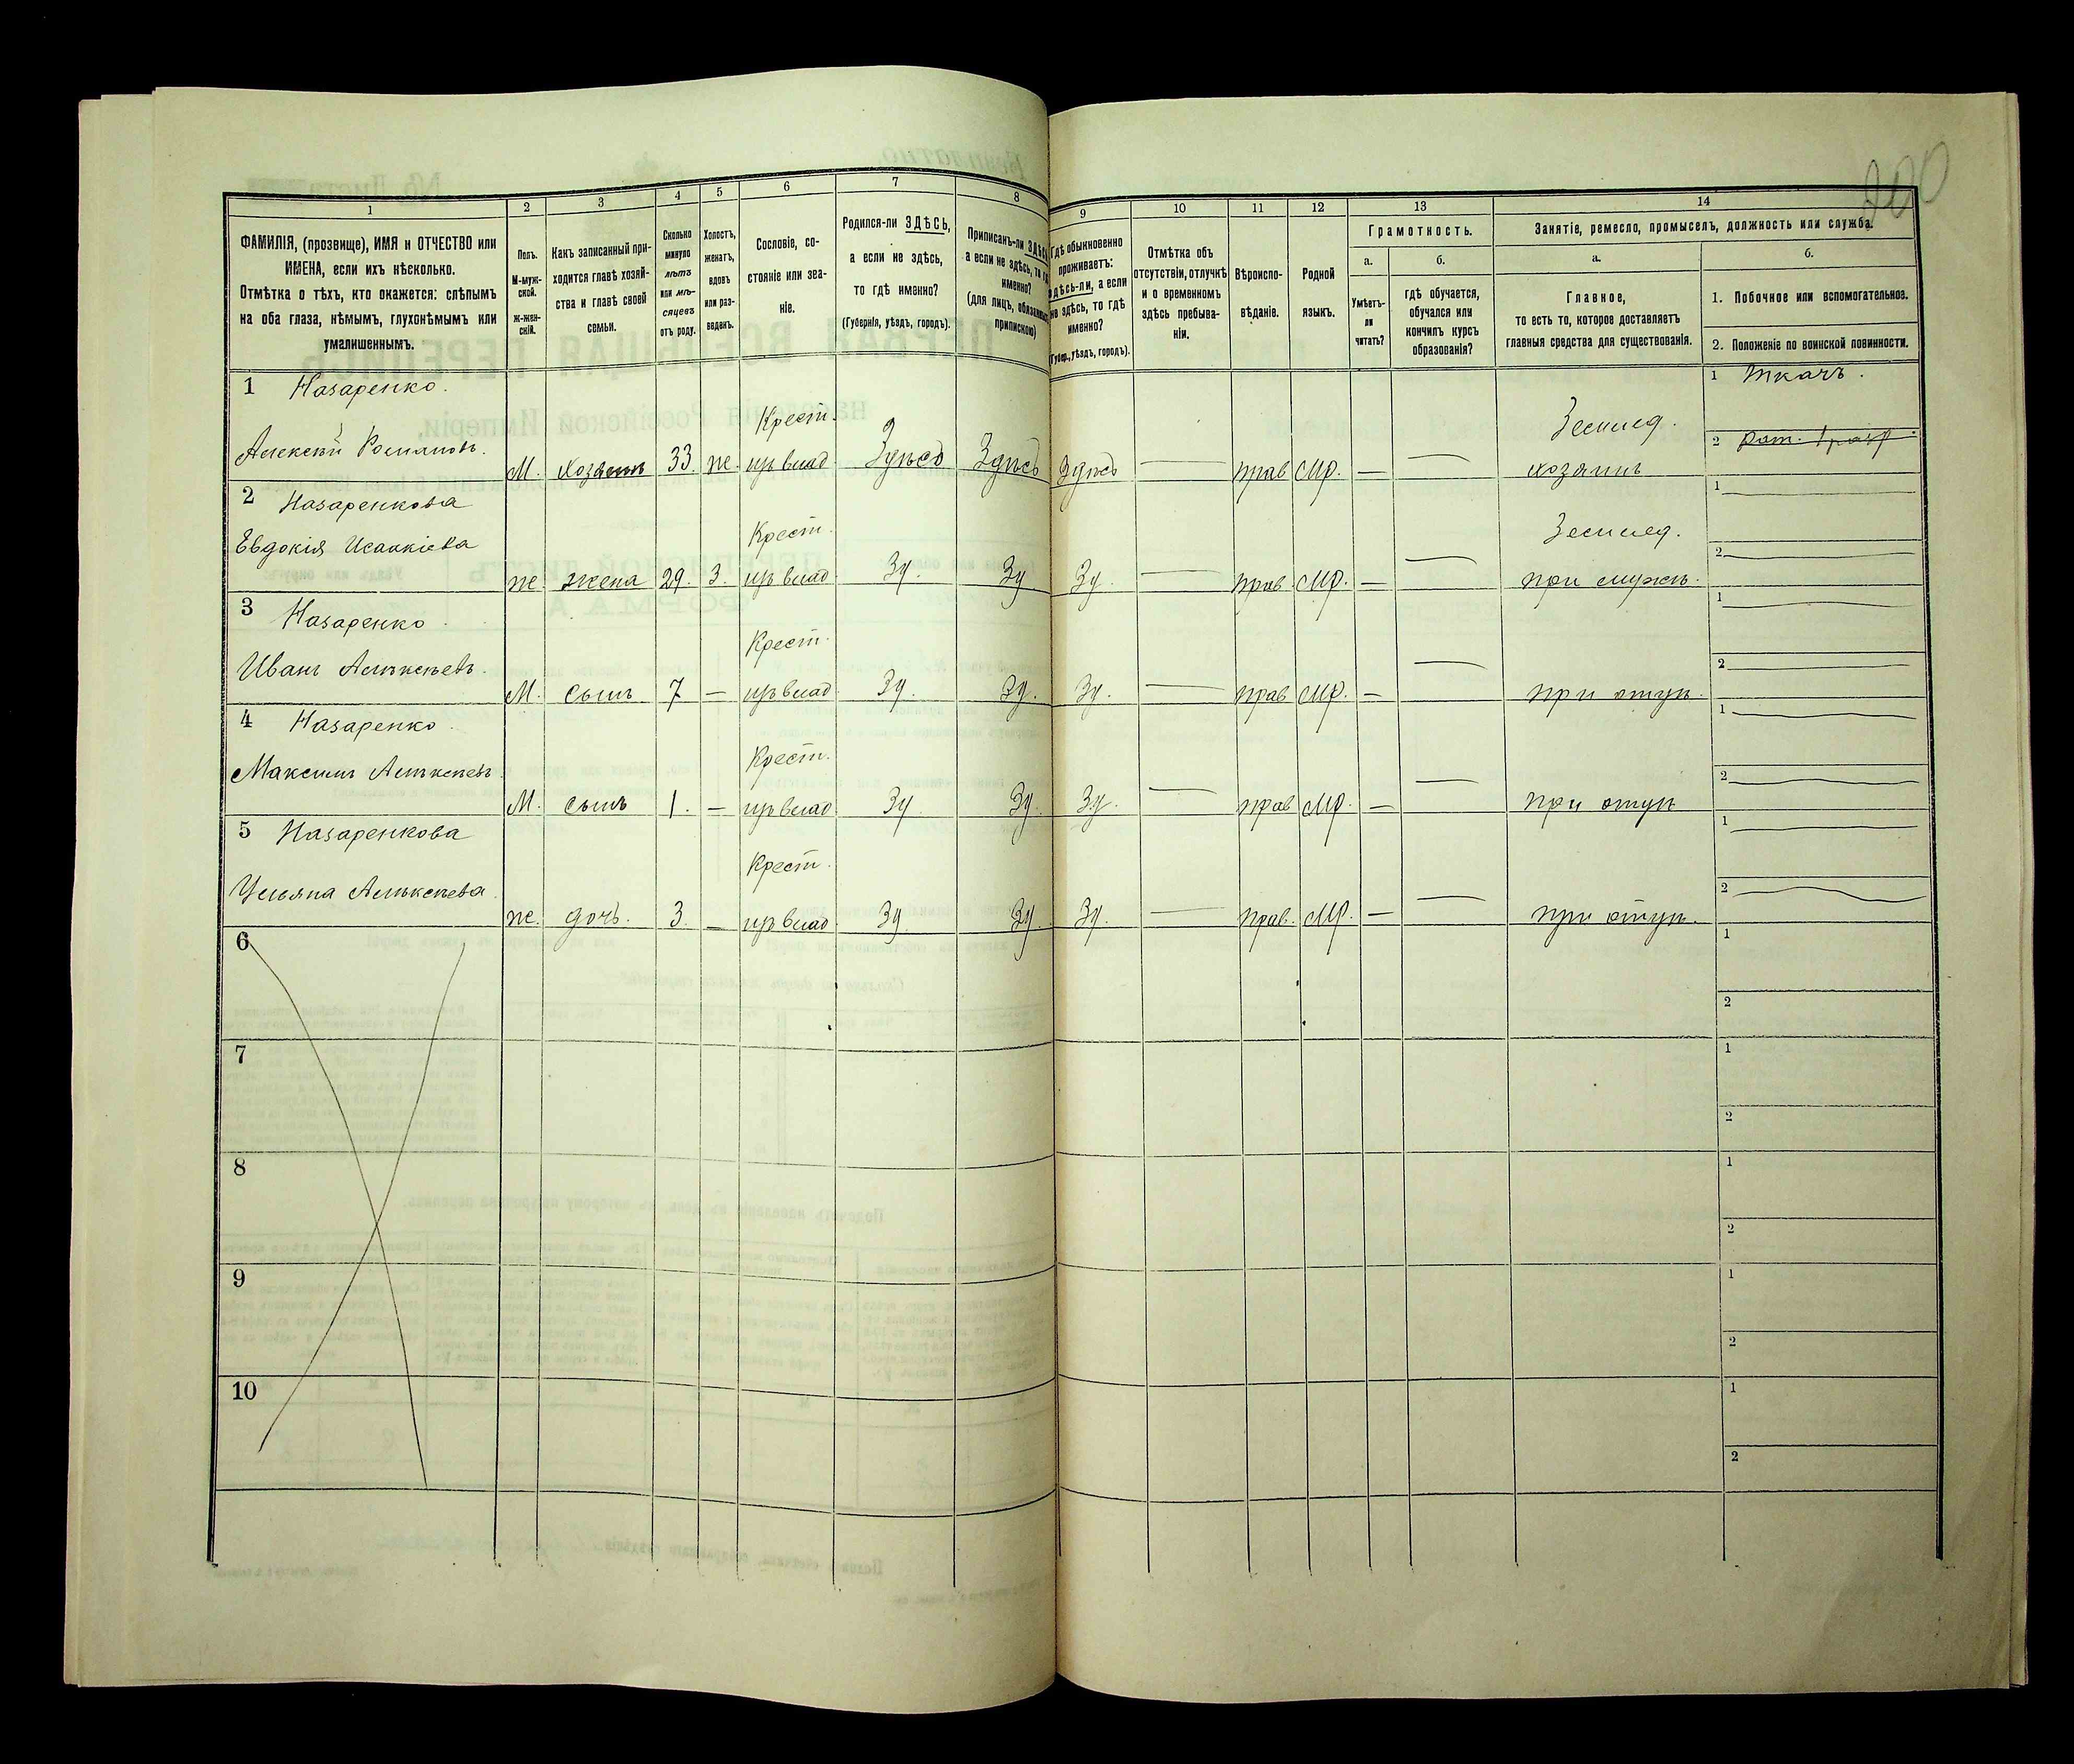 200
1
2
3
4
5
6
7
8
9
10
11
12
13
14
ФАМИЛІЯ, (прозвище), ИМЯ и ОТЧЕСТВО или
ИМЕНА, если ихъ нѣсколько.
Отмѣтка о тѣхъ, кто окажется: слѣпымъ
на оба глаза, нѣмымъ, глухонѣмымъ или
умалишеннымъ.
Полъ.
М-муж-
ской.
ж-жен-
скій.
Какъ записанный при-
ходится главѣ хозяй-
ства и главѣ своей
семьи.
Сколько
минуло
лѣтъ
или мѣ-
сяцевъ
отъ роду.
Холостъ,
женатъ,
вдовъ
или раз-
веденъ.
Сословіе, со-
стояніе или зва-
ніе.
Родился-ли ЗДѢСЬ,
а если не здѣсь,
то гдѣ именно?
(Губернія, уѣздъ, городъ).
Приписанъ-ли ЗДѢСЬ,
а если не здѣсь, то гдѣ
именно?
(для лицъ, обязанныхъ
припискою)
Гдѣ обыкновенно
проживаетъ:
здѣсь-ли, а если
не здѣсь, то гдѣ
именно?
(Губер., уѣздъ, городъ).
Отмѣтка объ
отсутствіи, отлучкѣ
и о временномъ
здѣсь пребыва-
ніи.
Вѣроиспо-
вѣданіе.
Родной
языкъ.
Грамотность.
а.
Умѣетъ-
ли
читать?
б.
гдѣ обучается,
обучался или
кончилъ курсъ
образованія?
Занятіе, ремесло, промыселъ, должность или служба.
а.
Главное,
то есть то, которое доставляетъ
главныя средства для существованія.
б.
1. Побочное или вспомогательное.
2. Положеніе по воинской повинности.
1 Назаренко.
Алексѣй Романовъ. М. хозяинъ 33. же. Крест. изъ влад. Здѣсь Здѣсь Здѣсь — прав мр. — — Землед. хозяинъ
1 Ткачъ.
2
2 Назаренкова
Евдокія Исаакіева же жена 29. З. Крест. изъ влад. Зд. Зд. Зд. — прав. мр. — — Землед. при мужѣ.
1
2
3 Назаренко
Иванъ Алѣксѣевъ. М. сынъ 7 — Крест. изъ влад. Зд. Зд. Зд. — прав мр. — — при отцѣ.
1
2
4 Назаренко.
Максимъ Алѣксѣевъ. М. сынъ 1. — Крест. изъ влад. Зд. Зд. Зд. — прав мр. — — при отцѣ
1
2
5 Назаренкова
Ульяна Алѣксѣева. же. дочь. 3. — Крест. изъ влад. Зд. Зд. Зд. — прав. мр. — — при отцѣ.
1
2
6
1
2
7
1
2
8
1
2
9
1
2
10
1
2